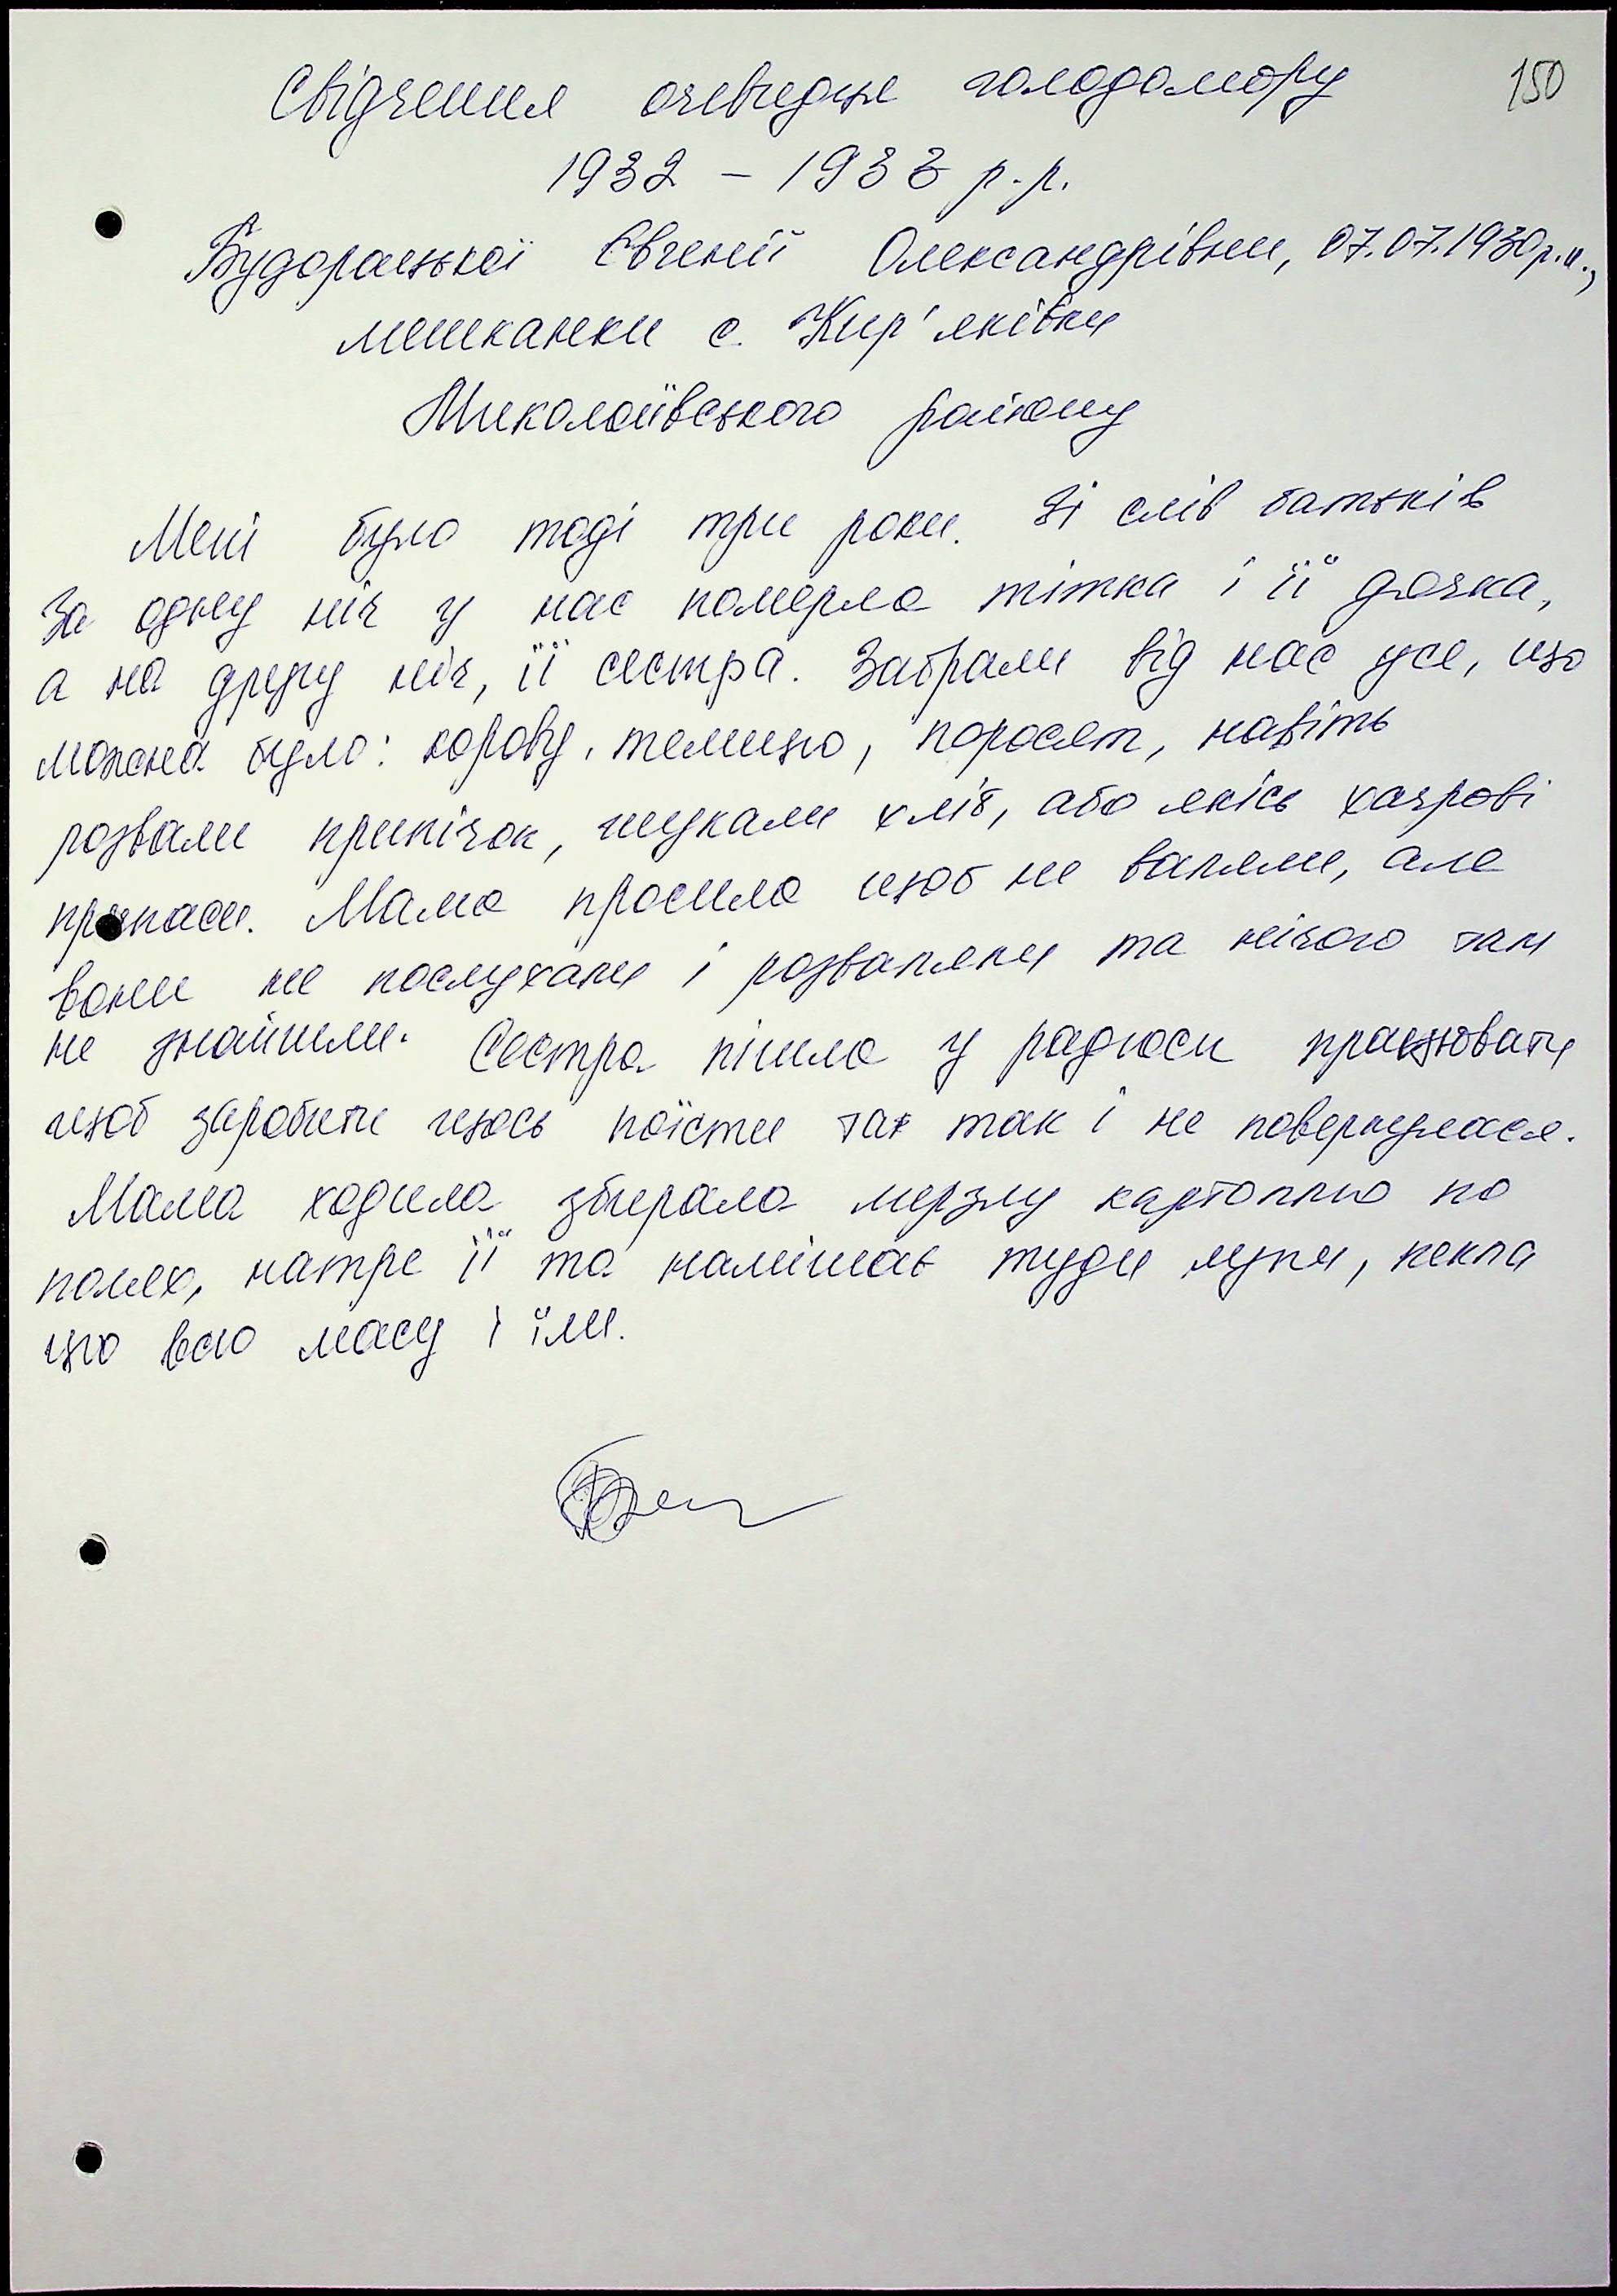 150
Свідчення очевидця голодомору
1932 - 1933 р.р.
Будорацької Євгенії Олександрівни, 07.07.1930р.н.,
мешканки с. Кир'яківки
Миколаївського району
Мені було тоді три роки. Зі слів батьків
За одну ніч у нас померла тітка і її дочка,
а на другу ніч, її сестра. Забрали від нас усе, що
можна було: корову, телицю, поросят, навіть
розвали припічок, шукали хліб, або якісь харчові
припаси. Мама просила щоб не валяли, але
вони не послухали і розваляли та нічого там
не знайшли. Сестра пішла у радгосп працювати
щоб заробити щось поїсти та так і не повернулася.
Мама ходила збирала мерзлу картоплю по
полях, натре її та намішає туди лупи, пекла
цю всю масу і їли.